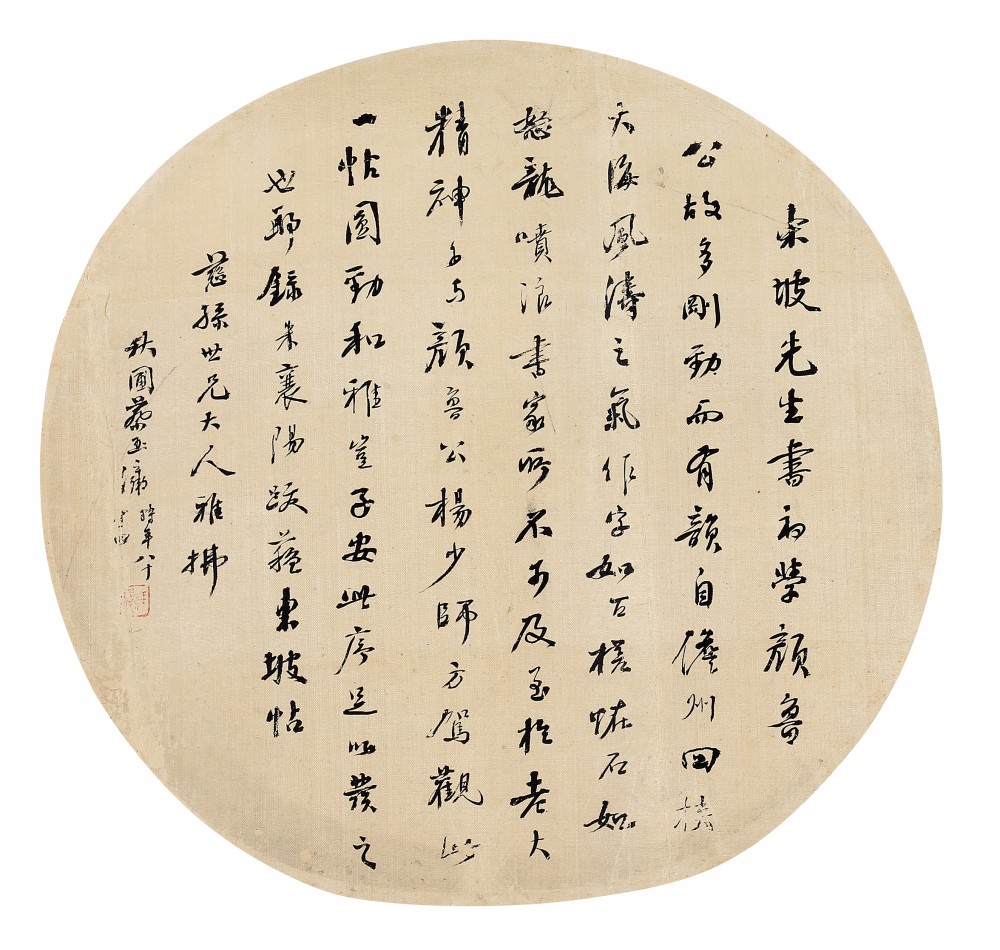 東坡先生書初學顏魯
公故多剛勁而有韻自儋州回挾
大海風濤之氣作字如古槎怪石如
怒龍噴浪書家所不可及至於老大
精神可与顏魯公楊少師方駕觀此
一帖圓勁和雅豈子安此序足以發之
也耶錄米襄陽跋蘇東坡帖
慈孫世兄大人雅拂
秋圃蔡玉 時年八十